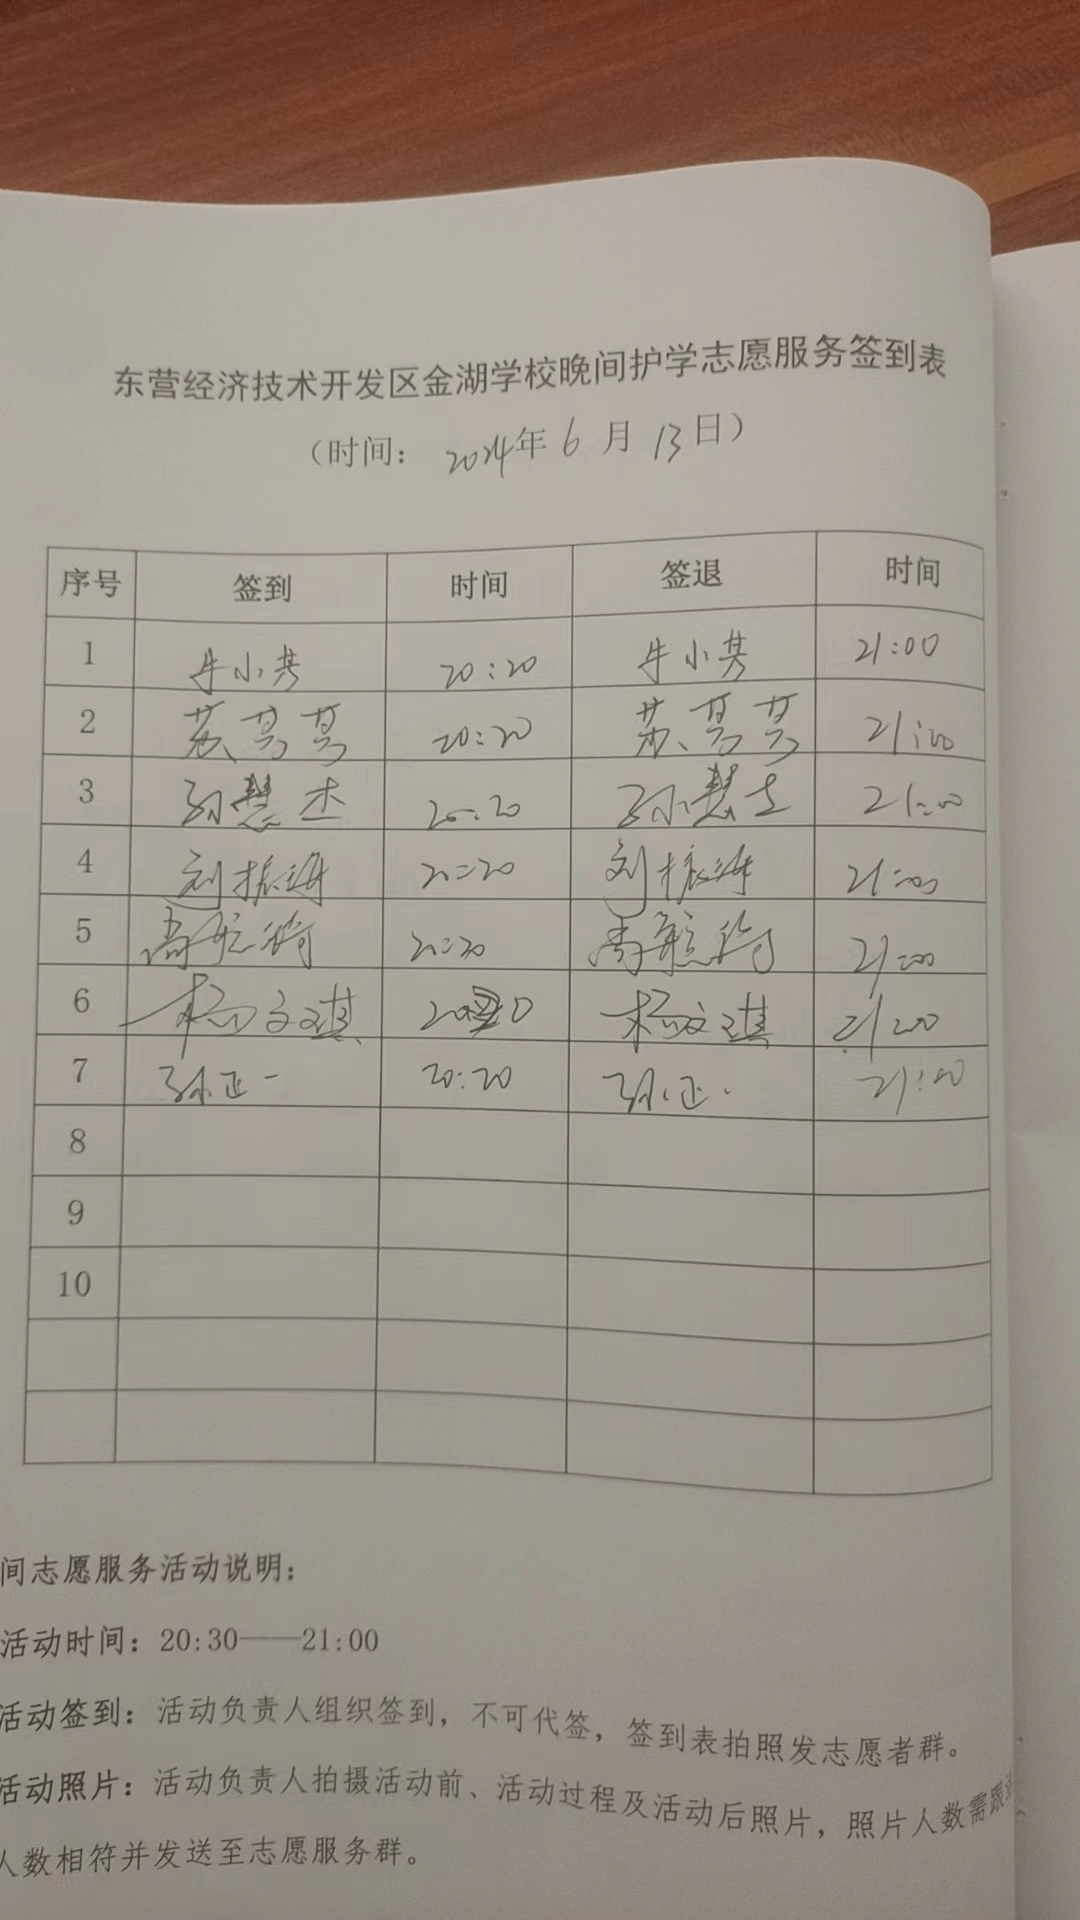 东营经济技术开发区金湖学校晚间护学志愿服务签到表
（时间： 2024年 6 月 13日）
序号 签到 时间 签退 时间
1 牛小芳 20:20 牛小芳 21:00
2 20:20 21:00
3 孙慧杰 20:20 孙慧杰 21:00
4 刘振海 20:20 刘振海 21:00
5 高航绮 20:20 高航绮 21:00
6 杨文琪 杨文琪 21:00
7 孙正一 20:20 孙正一 21:00
8
9
10
间志愿服务活动说明：
活动时间：20:30——21:00
活动签到：活动负责人组织签到，不可代签，签到表拍照发志愿者群。
活动照片：活动负责人拍摄活动前、活动过程及活动后照片，照片人数需跟
人数相符并发送至志愿服务群。